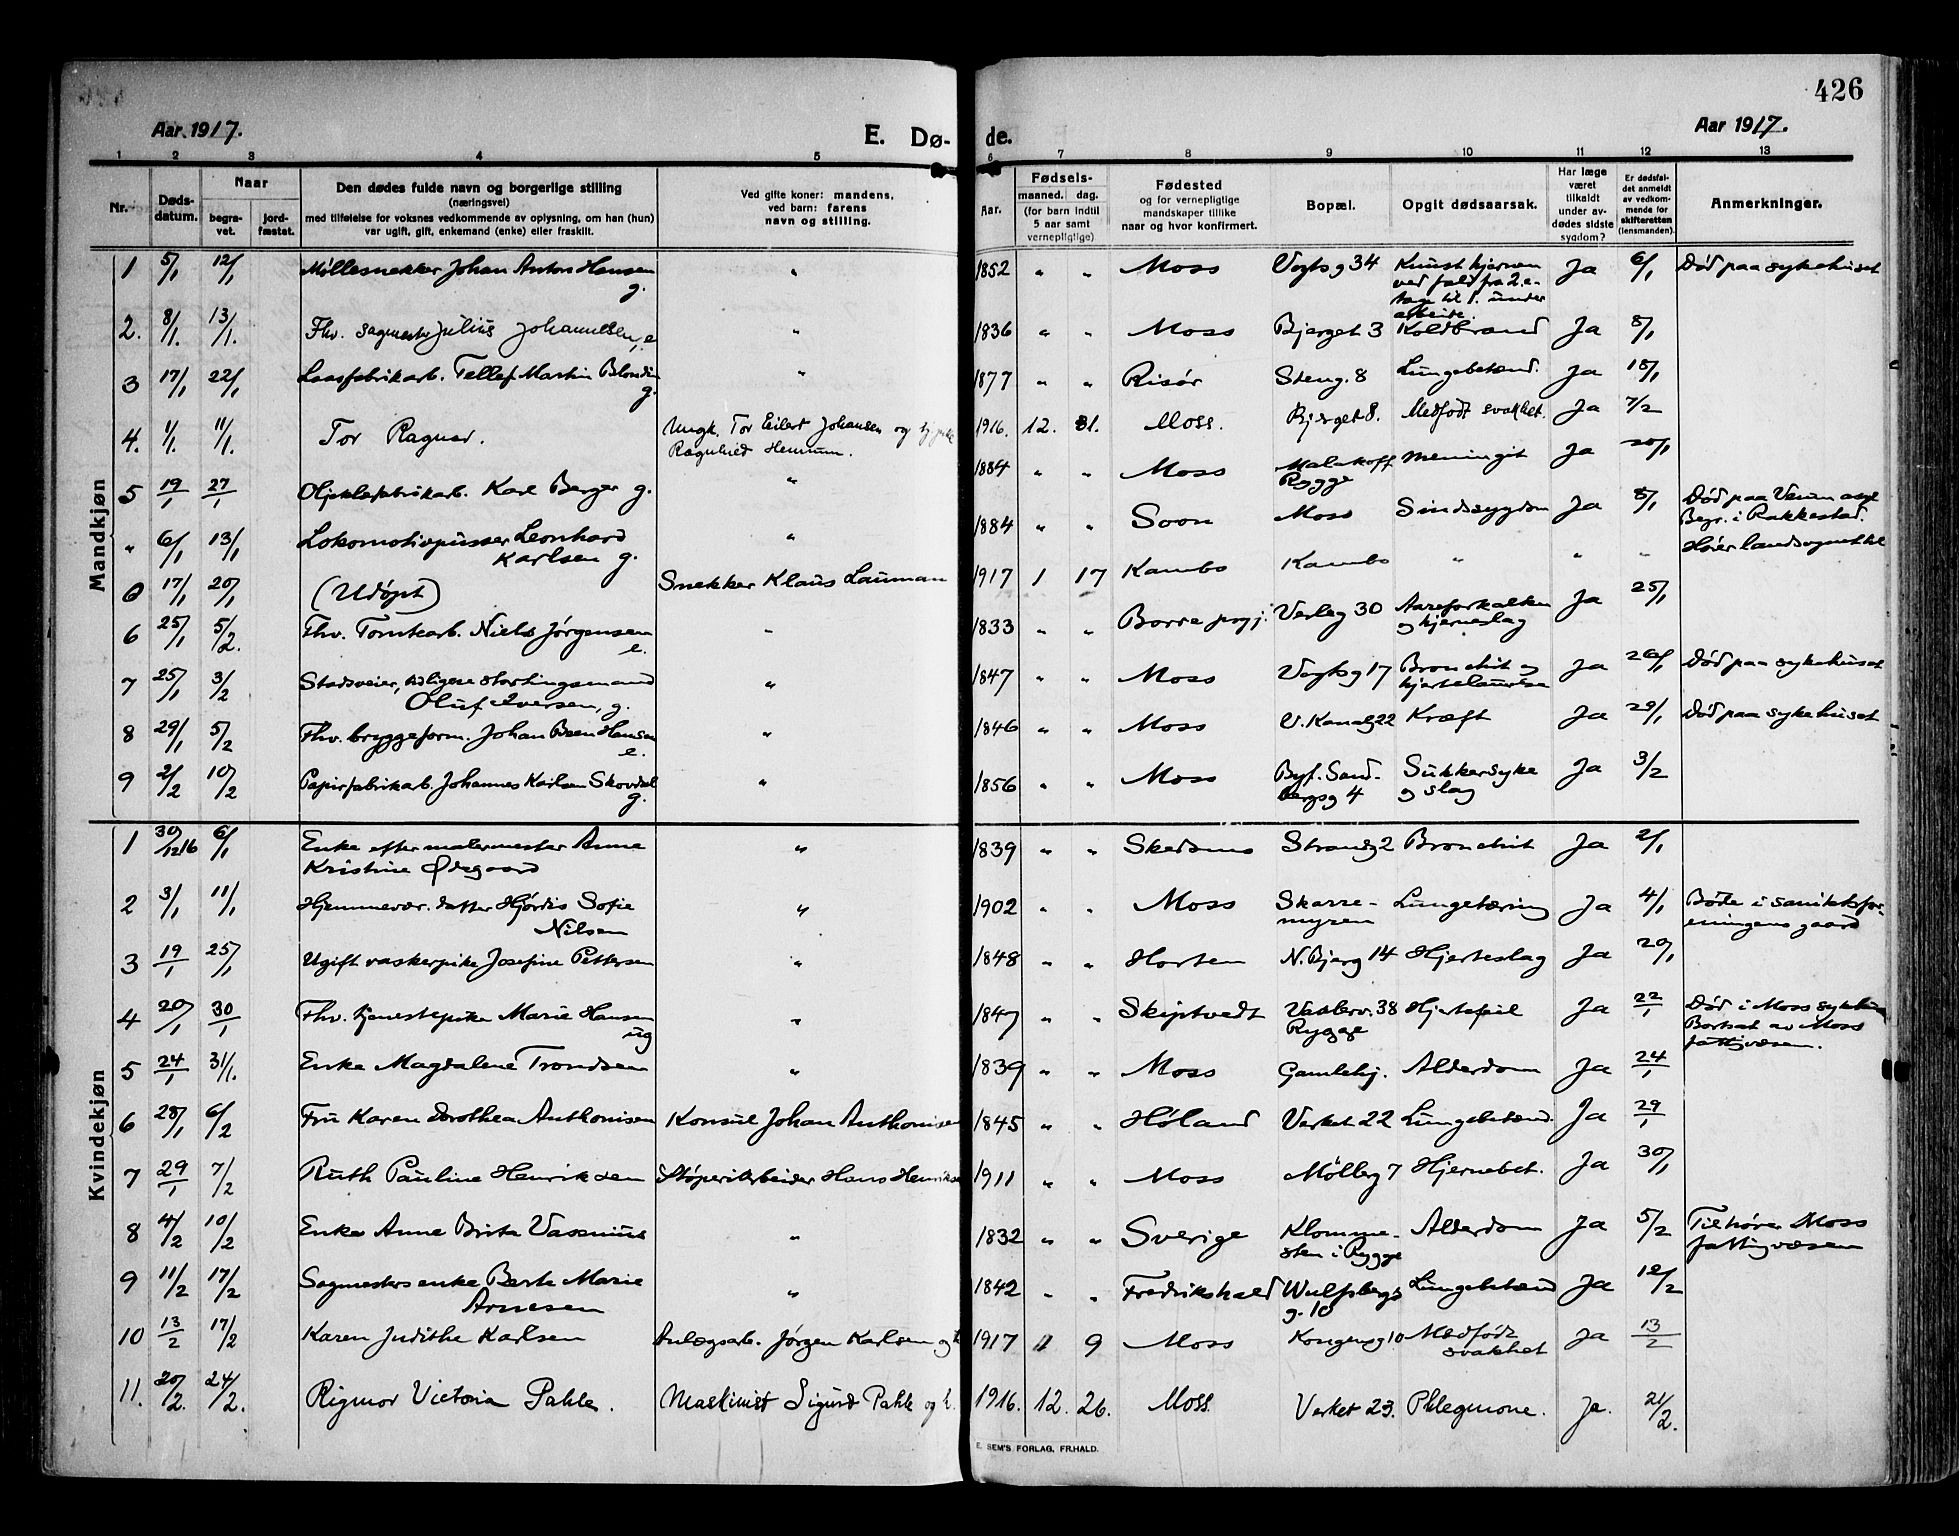 426
Aar 1917.
E. Dø-
de.
Aar 1917.
1 2 3 4 5 6 7 8 9 10 11 12 13
Nr. Døds-datum. Naar begra-vet. jord-fæstet. Den dødes fulde navn og borgerlige stilling (næringsvei) med tilføielse for voksnes vedkommende av oplysning, om han (hun) var ugift, gift, enkemand (enke) eller fraskilt. Ved gifte koner: mandens, ved barn: farens navn og stilling. Aar. Fødsels- maaned. dag. (for barn indtil 5 aar samt vernepligtige) Fødested og for vernepligtige mandskaper tillike naar og hvor konfirmert. Bopæl. Opgit dødsaarsak. Har læge været tilkaldt under av-dødes sidste sygdom? Er dødsfal-det anmeldt av vedkom-mende for skifteretten (lensmanden). Anmerkninger.
Mandkjøn
1 5/1 12/1 Møllesnekker Johan Anton Hansen g. " 1852 " " Moss Vogtsg 34 Knust hjernen ved fald fra 2. e-tage til 1. under arbeide. Ja 6/1 Død paa sykehuset
2. 8/1. 13/1. Fhv. sagmester Julius Johannessen, e " 1836 " " Moss Bjerget 3 Koldbrand Ja 8/1
3 17/1 22/1 Laasfabrikarb. Tellef Martin Blondin g. " 1877 " " Risør Steng. 8 Lungebetænd. Ja 18/1
4. 1/1. 11/1. Tor Ragnar. Ungk. Tor Eilert Johansen og Ragnhild Hennum. 1916. 12. 31. Moss. Bjerget 8. Medfødt svakhet. Ja 7/2
5 19/1 27/1 Oljeklefabrikarb. Karl Berger g. " 1884 " " Moss Malakoff Rygge Meningit Ja 20/1
" 6/1 13/1 Lokomotivpusser Leonhard Karlsen g. " 1884 " " Soon Moss Sindssygdom Ja 8/1 Død paa Veum asyl Begr. i Rakkestad.
0 17/1 20/1 (Udøpt) Snekker Klaus Lauman 1917 1 17 Kambo Kambo " " " Hører landsognet til
6 25/1 5/2. Fhv. Tomtearb. Niels Jørgensen e. " 1833 " " Borre prgj. Verleg 30 Aareforkalken og hjerneslag Ja 25/1
7 25/1 3/2 Stadsveier, tidligere stortingsmand Oluf Iversen, g. " 1847 " " Moss Vogtsg 17 Bronchit og hjertelammelse Ja 26/1 Død paa sykehuset
8 29/1 5/2 Fhv. bryggeform. Johan Been Hansen e. " 1846 " " Moss V. Kanalg 22 Kræft Ja 29/1 Død paa sykehuset
9 2/2 10/2 Papirfabrikarb. Johannes Karlsen Skovdal g. " 1856 " " Moss Byf. Sand-bergsg 4 Sukkersyke og slag Ja 3/2
Kvindekjøn
1 30/12 16 6/1 Enke efter malermester Anne Kristine Ødegaard " 1839 " " Skedsmo Strandg 2 Bronchit Ja 2/1
2 3/1 11/1 Hjemmevær. datter Hjørdis Sofie Nilsen " 1902 " " Moss Skarre-myren Lungetæring Ja 4/1 Bode i sanitetsfor-eningens gaard
3 19/1 25/1 Ugift vaskerpike Josefine Pettersen " 1848 " " Horten N. Bjerg 14 Hjerteslag Ja 20/1
4 20/1 30/1 Fhv. tjenestepike Marie Hansen ug " 1847 " " Skiptvedt Vaalerv. 38 Rygge Hjertefeil Ja 22/1 Død i Moss sykehus Bortsat av Moss fattigvæsen.
5 24/1 31/1. Enke Magdalene Trondsen " 1839 " " Moss Gamlehj. Alderdom Ja 24/1
6 28/1 6/2 Fru Karen Dorothea Anthonisen Konsul Johan Anthonisen 1845 " " Høland Verket 22 Lungebetænd. Ja 29/1
7 29/1 7/2 Ruth Pauline Henriksen Støperiarbeider Hans Henriksen 1911 " " Moss Mølleg 7 Hjernebet. Ja 30/1
8 4/2 10/2 Enke Anne Brita Vassnius " 1832 " " Sverige Klomme-sten i Rygge Alderdom Ja 5/2 Tilhører Moss fattigvæsen
9 11/2 17/2 Sagmesters enke Berte Marie Arnesen " 1842 " " Fredrikshald Wulfsbergs g. 10 Lungebetænd Ja 12/2
10 13/2 17/2 Karen Judithe Karlsen Anlægsarb. Jørgen Karlsen og h 1917 11 9 Moss Kongensg 10 Medfødt svakhet Ja 13/2
11. 20/2. 24/2. Rigmor Victoria Pahle. Maskinist Sigurd Pahle og h. 1916. 12. 26. Moss. Verket 23. Phlegmone. Ja. 21/2.
E. SEM'S FORLAG, FR.HALD.